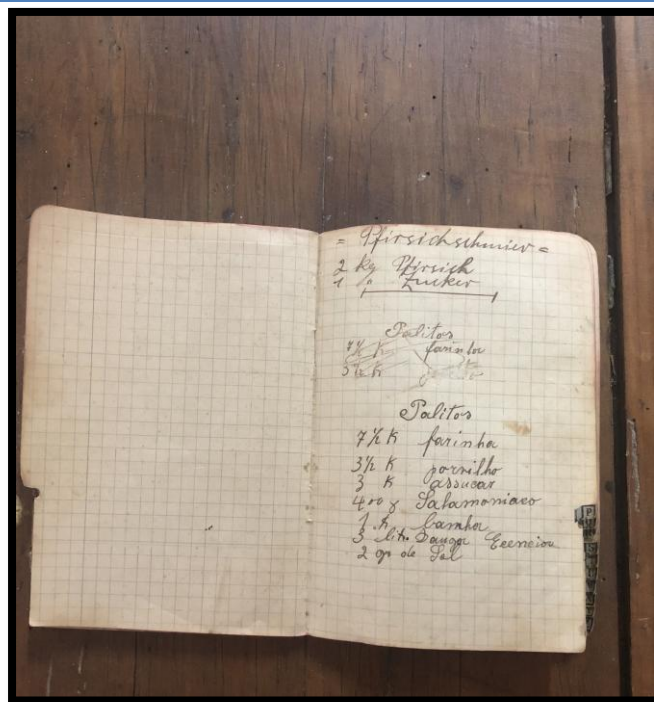 = Pfirsichschmier =
2 kg Pfirsich
1 " Zucker
Palitos
7½ K farinha
3½ K
Palitos
7½ K farinha
3½ K porvilho
3 K assucar
400 g Salamoniaco
1 K bamha
3 litr.
2 gr de Sal